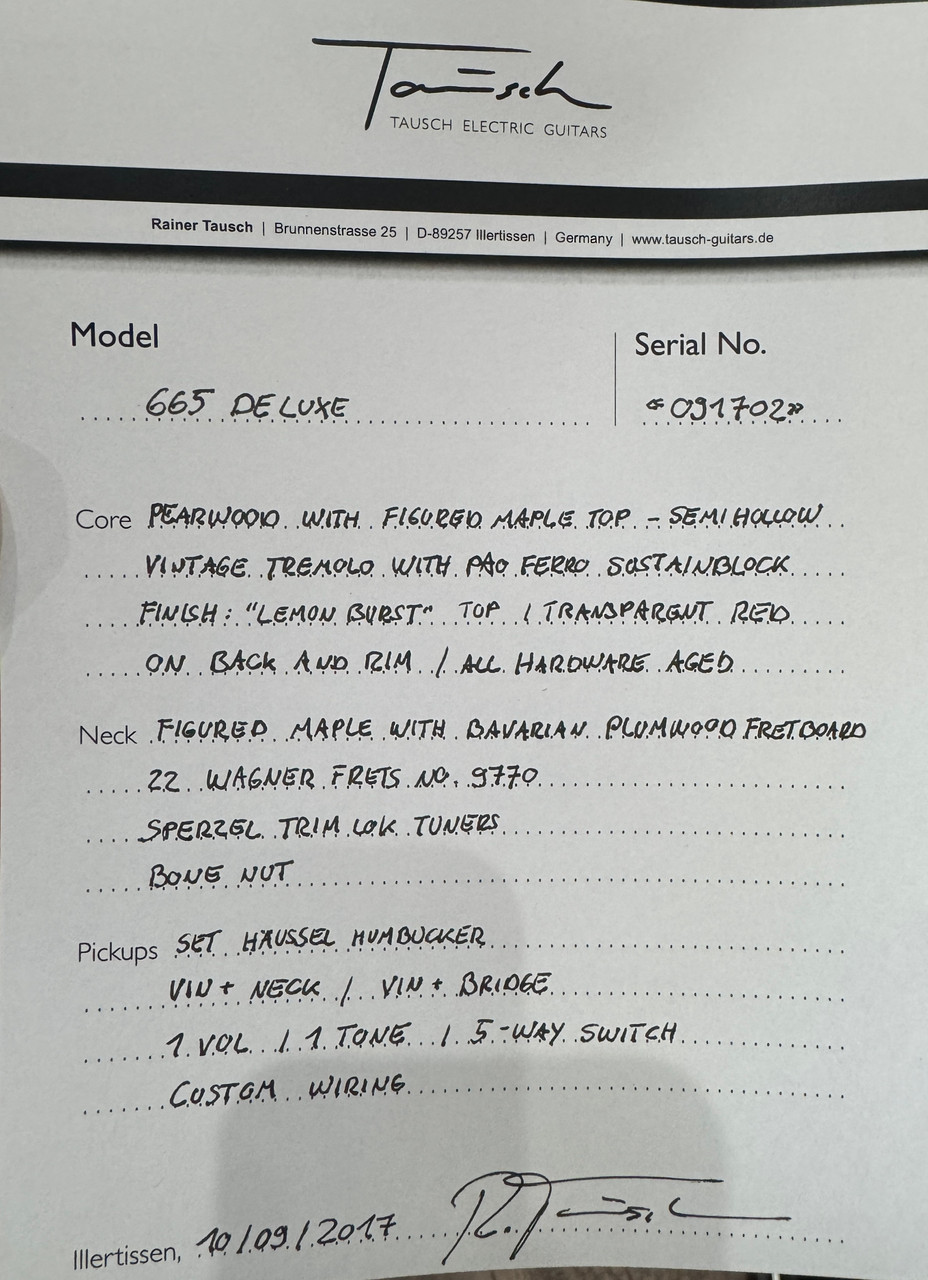 Tausch
TAUSCH ELECTRIC GUITARS
Rainer Tausch | Brunnenstrasse 25 | D-89257 Illertissen | Germany | www.tausch-guitars.de
Model
Serial No.
665 DELUXE
"091702"
Core PEARWOOD WITH FIGURED MAPLE TOP - SEMIHOLLOW
VINTAGE TREMOLO WITH PAO FERRO SUSTAINBLOCK
FINISH: "LEMON BURST" TOP / TRANSPARENT RED
ON BACK AND RIM / ALL HARDWARE AGED
Neck FIGURED MAPLE WITH BAVARIAN PLUMWOOD FRETBOARD
22 WAGNER FRETS NO. 9770
SPERZEL TRIM LOK TUNERS
BONE NUT
Pickups SET HÄUSSEL HUMBUCKER
VIN + NECK / VIN + BRIDGE
1 VOL / 1 TONE / 5-WAY SWITCH
CUSTOM WIRING
Illertissen, 10/09/2017 R. Tausch